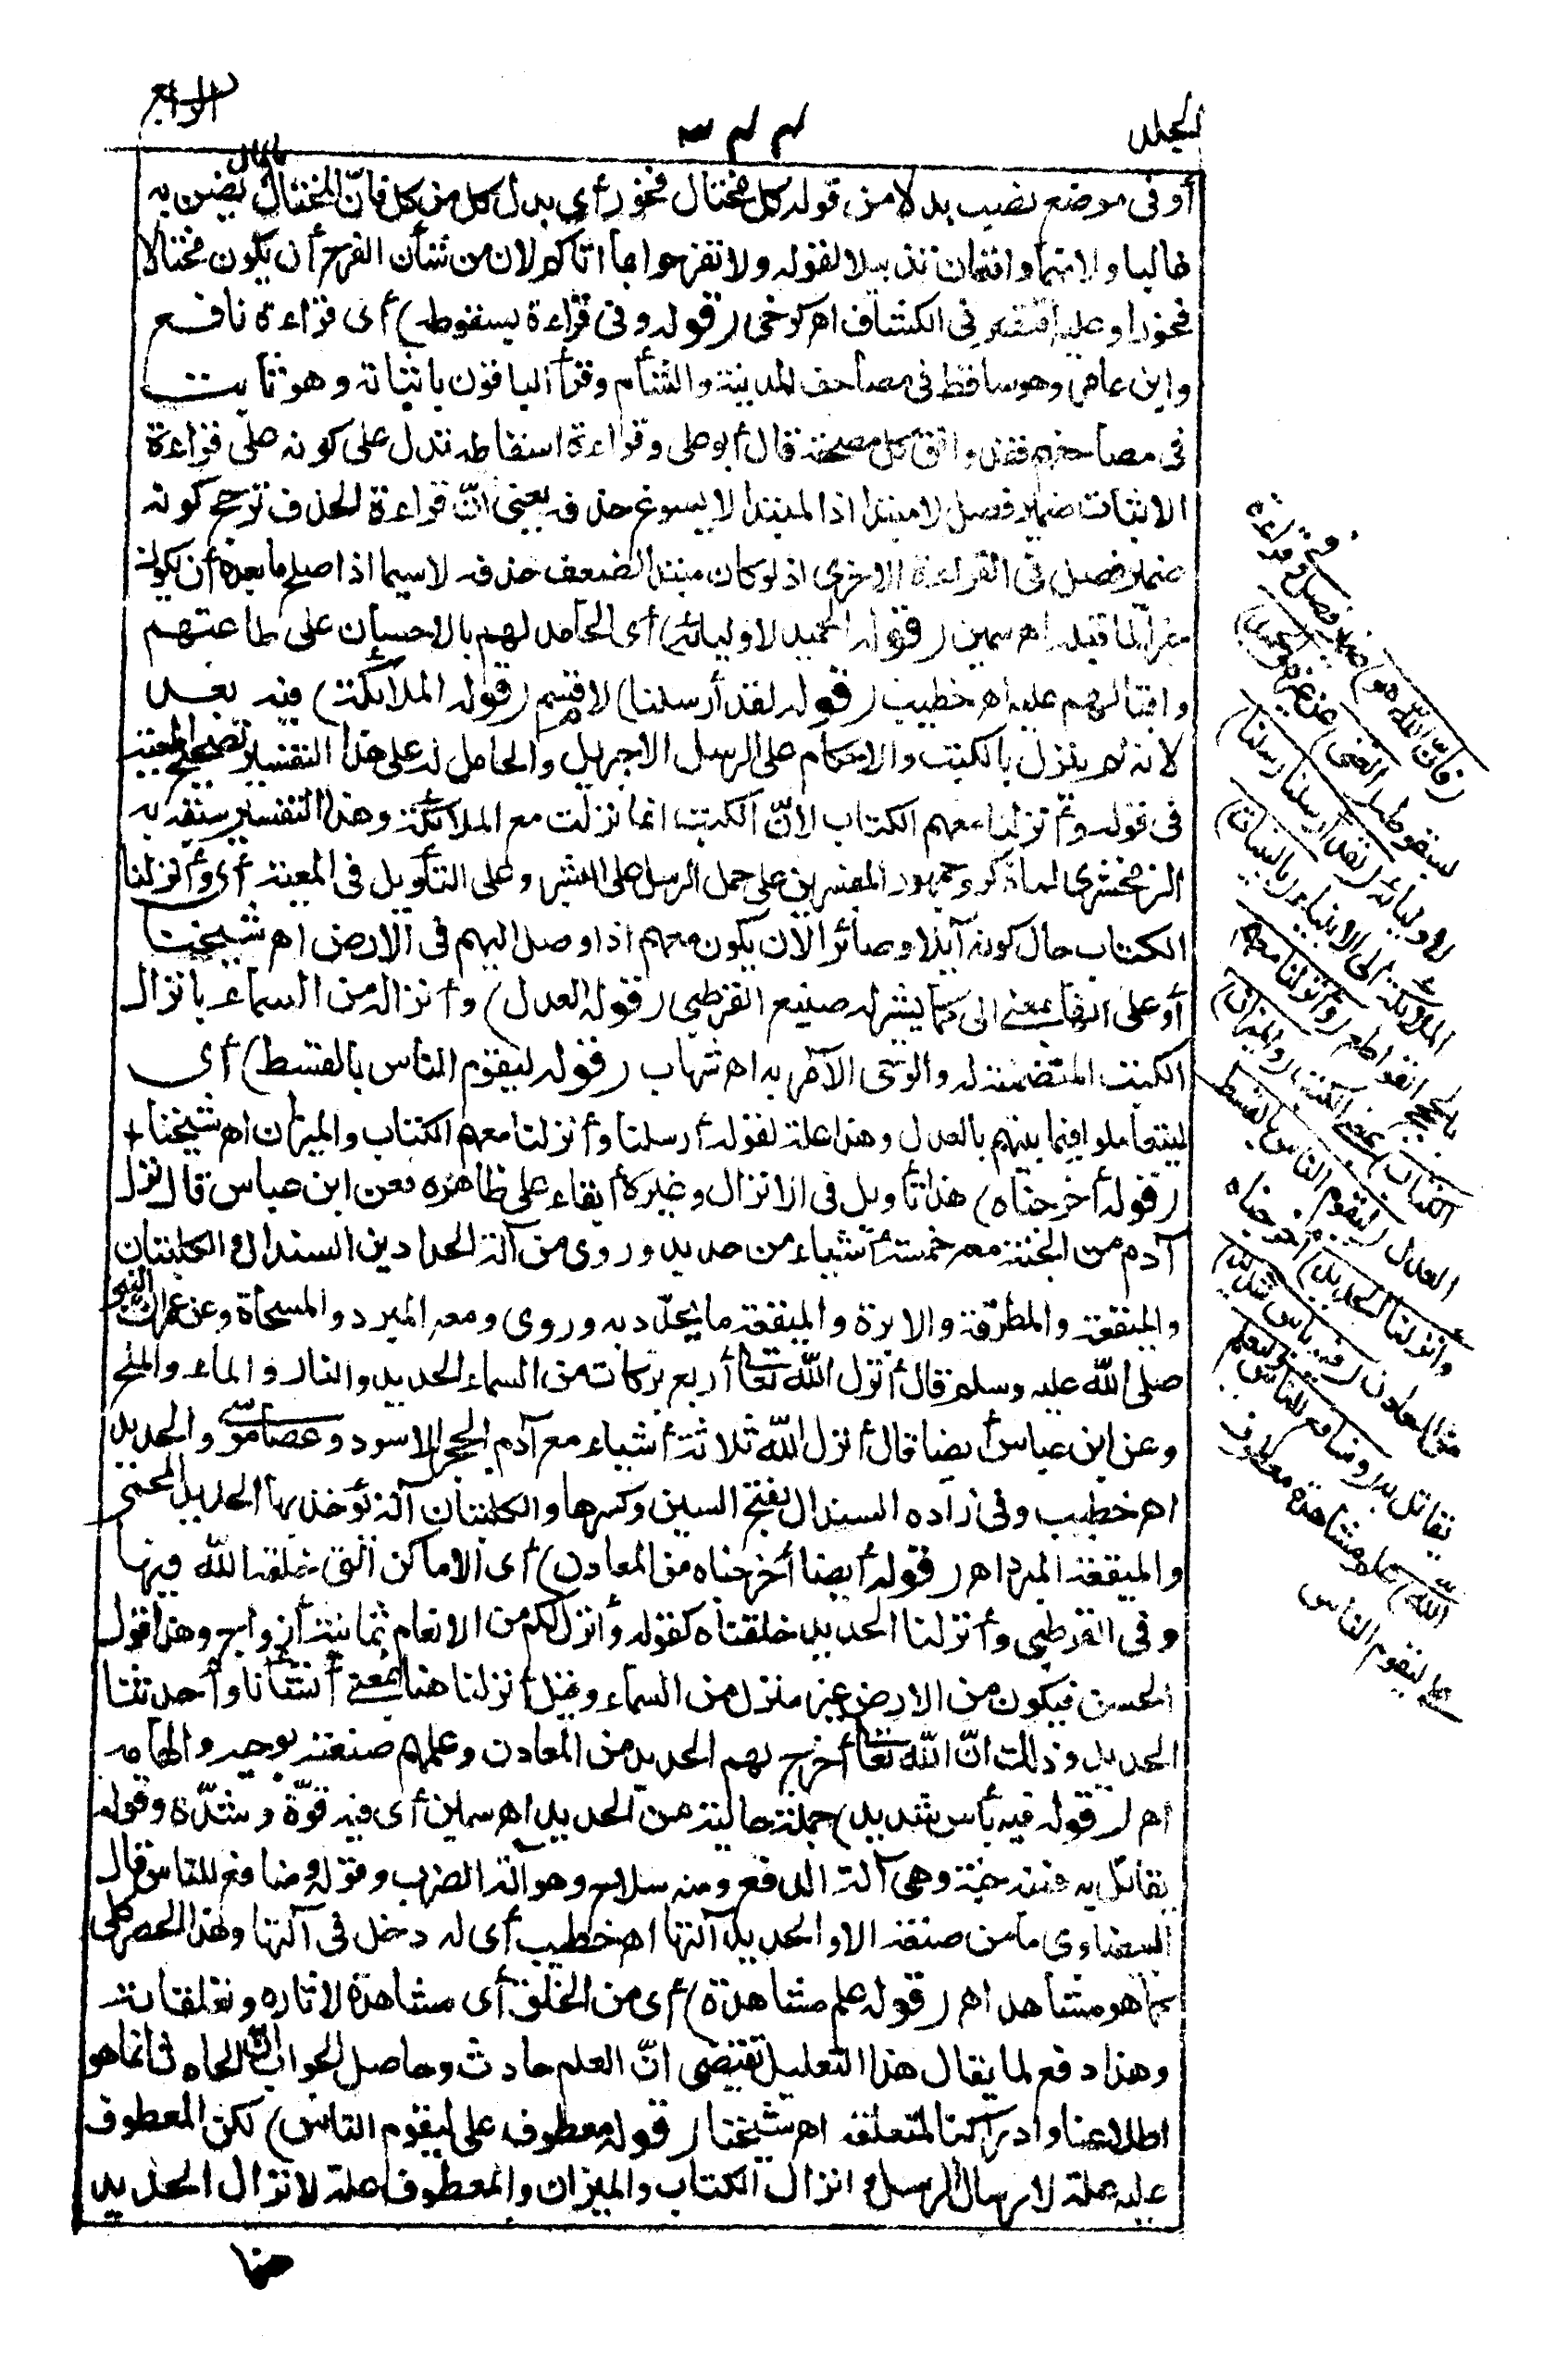 المجلد
٣٢٣
الرابع
أو فى موضع نصب بدلا من قوله كل مختال فخور أى بدل كل من كل فانّ المختال بالمال يضن به
غالبا والاتمام وافتمان تذييلا لقوله ولا تفرحوا بما اتاكم لان من شأن الفرح أن يكون مختالا
فخورا وعليه اقتصر فى الكشاف اهـ كرخى (قوله وفى قراءة بسقوطه) أى قراءة نافع
وابن عامر وهو ساقط فى مصاحف المدينة والشأم وقرأ الباقون باثباته وهو ثابت
فى مصاحفهم فقد وافق كل مصحفه قال أبو على وقراءة اسقاطه تدل على كونه على قراءة
الاثبات ضمير فصل لا مبتدا اذ المبتدا لا يسوغ حذفه يعنى انّ قراءة الحذف ترجح كونه
ضمير فصل فى القراءة الاخرى اذ لو كان مبتدا لضعف حذفه لاسيما اذا صلح ما بعده أن يكون
خبرا لما قبله اهـ سمين (قوله الحميد لاوليائه) أى الحامد لهم بالاحسان على طاعتهم
واقبالهم عليه اهـ خطيب (قوله لقد أرسلنا) لام قسم (قوله الملائكة) فيه بعد
لانه لم ينزل بالكتب والاحكام على الرسل الا جبريل والحامل له على هذا التفسير تصحيح المعية
فى قوله وأنزلنا معهم الكتاب لانّ الكتب انما نزلت مع الملائكة وهذا التفسير سبقه به
الزمخشرى لما ذكر وجمهور المفسرين على حمل الرسل على البشر وعلى التأويل فى المعية أى وأنزلنا
الكتاب حال كونه آيلا وصائرا لان يكون معهم اذا وصل اليهم فى الارض اهـ شيخنا
أو على انها بمعنى الى كما يشير له صنيع القرطبى (قوله العدل) وأنزاله من السماء بانزال
الكتب المتضمنة له والوحى الآمر به اهـ شهاب (قوله ليقوم الناس بالقسط) أى
ليتعاملوا فيما بينهم بالعدل وهذا علة لقوله أرسلنا وأنزلنا معهم الكتاب والميزان اهـ شيخنا
(قوله أخرجناه) هذا تأويل فى الانزال وغيره أبقاه على ظاهره فعن ابن عباس قال نزل
آدم من الجنة معه خمسة أشياء من حديد وروى من آلة الحدادين السندان والكلبتان
والميقعة والمطرقة والابرة والميقعة ما يحدّد به وروى ومعه المبرد والمسحاة وعن عمر انّ النبى
صلى الله عليه وسلم قال أنزل الله تعالى أربع بركات من السماء الحديد والنار والماء والملح
وعن ابن عباس أيضا قال أنزل الله ثلاثة أشياء مع آدم الحجر الاسود وعصا موسى والحديد
اهـ خطيب وفى زاده السندان بفتح السين وكسرها والكلبتان آلة تؤخذ بها الحديد المحمى
والميقعة المبرد اهـ (قوله أيضا أخرجناه من المعادن) أى الاماكن التى خلقه الله فيها
وفى القرطبى وأنزلنا الحديد خلقناه كقوله وأنزل لكم من الانعام ثمانية أزواج وهذا قول
الحسن فيكون من الارض غير منزل من السماء وقيل أنزلنا هنا بمعنى أنشأنا وأحدثنا
الحديد وذلك انّ الله تعالى أخرج لهم الحديد من المعادن وعلمهم صنعته بوحيه والهامه
اهـ (قوله فيه بأس شديد) جملة حالية من الحديد اهـ سمين أى فيه قوّة وشدّة وقوله
يقاتل به فمنه جنة وهى آلة الدفع ومنه سلاح وهو آلة الضرب وقوله ومنافع للناس قال
البيضاوى ما من صنعة الا والحديد آلتها اهـ خطيب أى له دخل فى آلتها وهذا الحصر كلى
كما هو مشاهد اهـ (قوله علم مشاهدة) أى من الخلق أى مشاهدة لاثاره وتعلقاته
وهذا دفع لما يقال هذا التعليل يقتضى انّ العلم حادث وحاصل الجواب انّ الحادث انما هو
اطلاعنا وادراكنا لمتعلقه اهـ شيخنا (قوله معطوف على ليقوم الناس) لكن المعطوف
عليه علة لارسال الرسل وانزال الكتاب والميزان والمعطوف علة لانزال الحديد
هنا
(فانّ الله هو) ضمير فصل وفى قراءة
بسقوطه (الغنى) عن غيره (الحميد)
لاوليائه (لقد أرسلنا رسلنا)
الملائكة الى الانبياء (بالبينات)
بالحجج القواطع (وأنزلنا معهم
الكتاب) بمعنى الكتب (والميزان)
العدل (ليقوم الناس بالقسط
وأنزلنا الحديد) أخرجناه
من المعادن (فيه بأس شديد)
يقاتل به (ومنافع للناس وليعلم
الله) علم مشاهدة معطوف
على ليقوم الناس